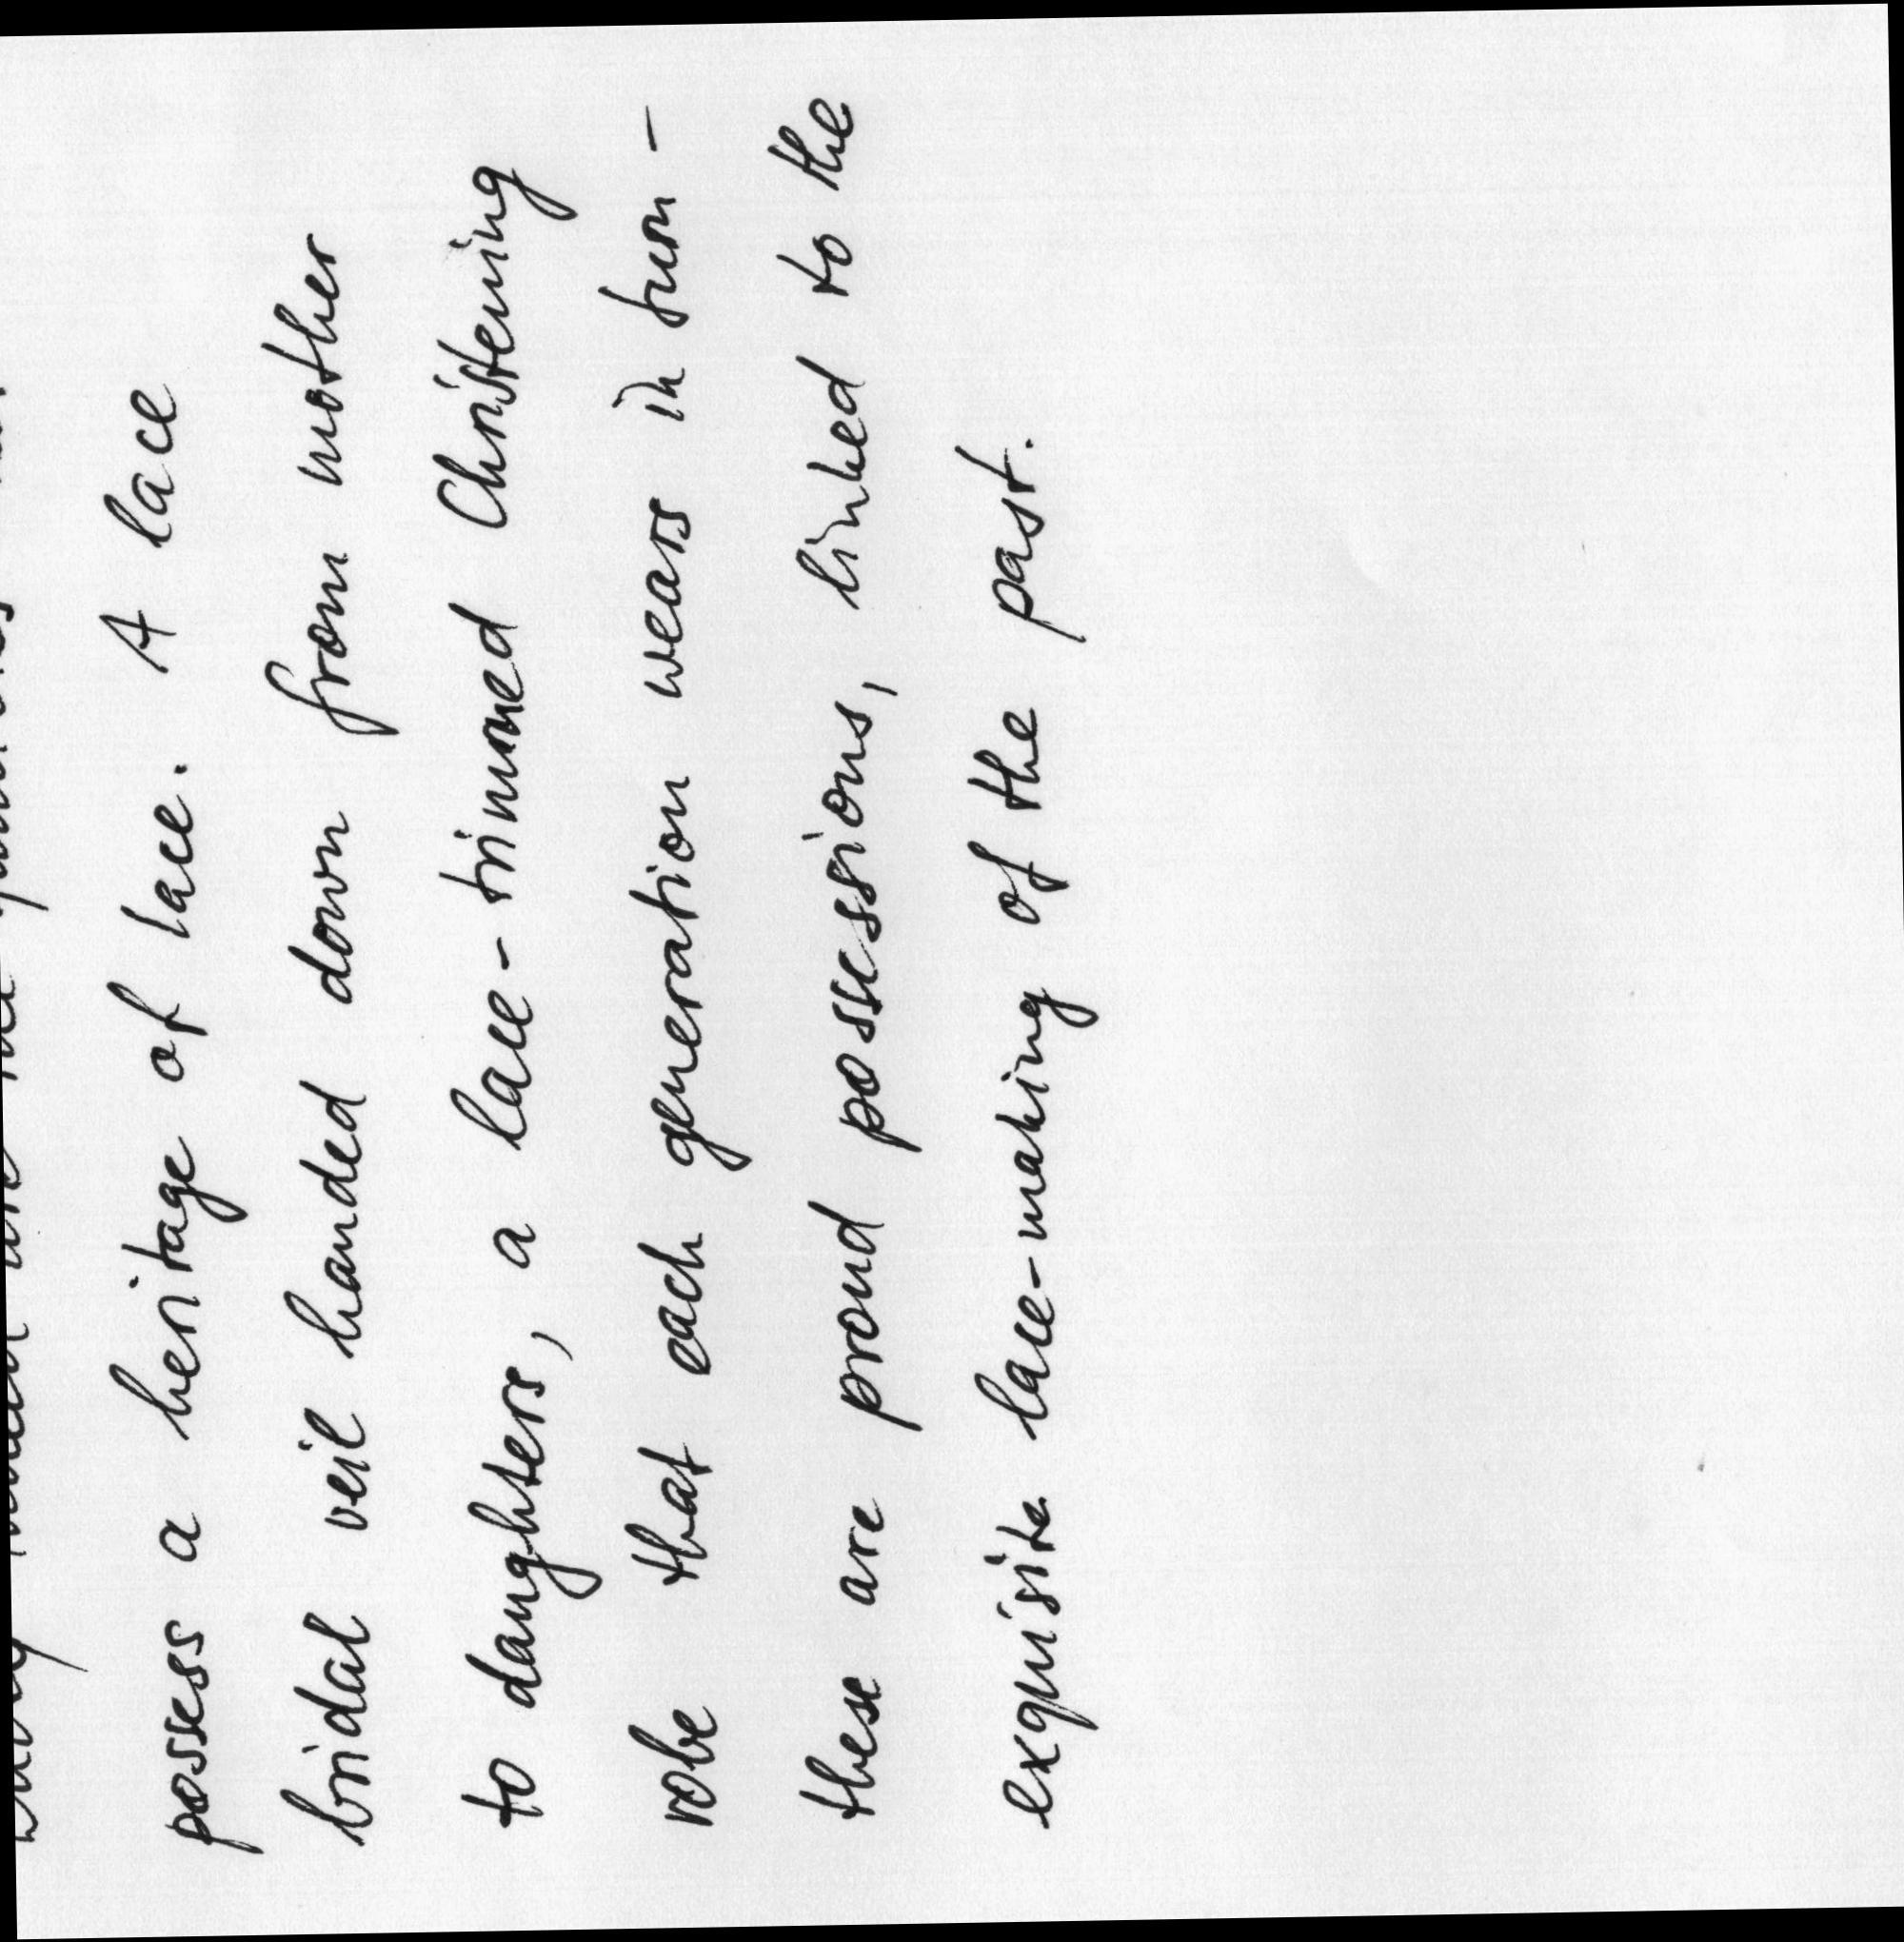 possess a heritage of lace. A lace
bridal veil handed down from mother
to daughters, a lace-trimmed Christening
robe that each generation wears in turn -
these are proud possessions, linked to the
exquisite lace-making of the past.